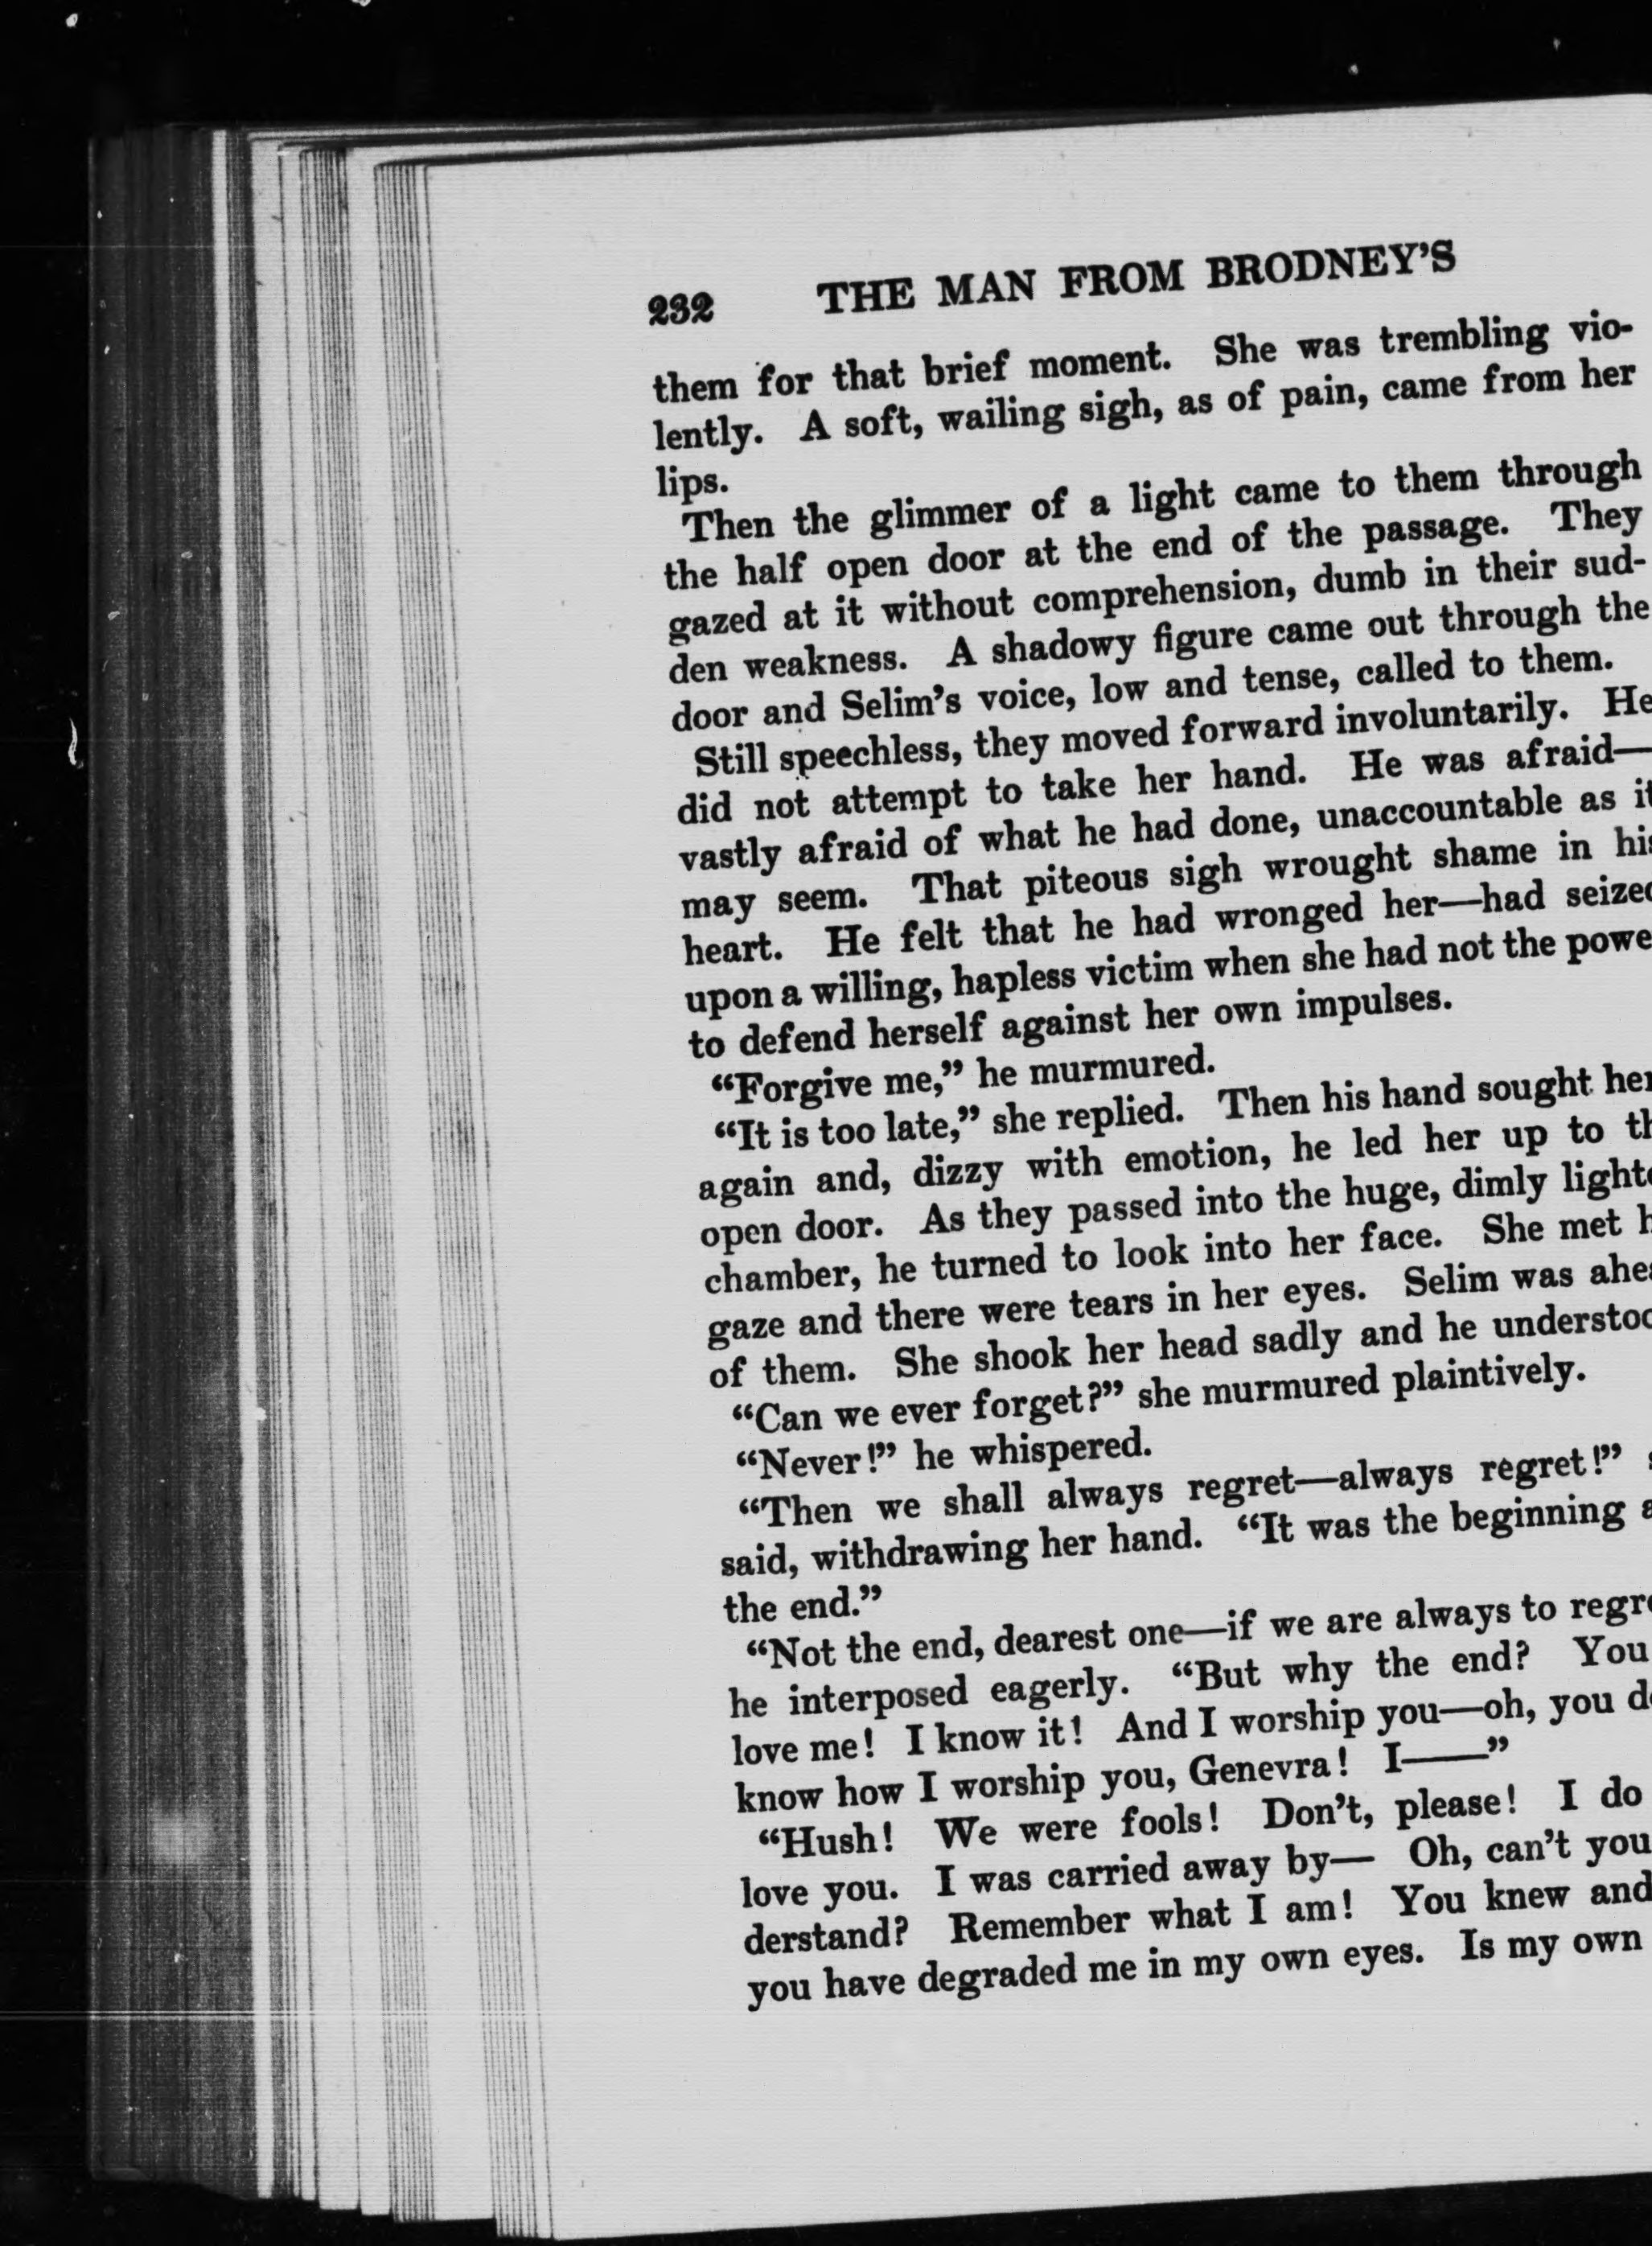 232 THE MAN FROM BRODNEY'S
them for that brief moment. She was trembling vio-
lently. A soft, wailing sigh, as of pain, came from her
lips.
Then the glimmer of a light came to them through
the half open door at the end of the passage. They
gazed at it without comprehension, dumb in their sud-
den weakness. A shadowy figure came out through the
door and Selim's voice, low and tense, called to them.
Still speechless, they moved forward involuntarily. He
did not attempt to take her hand. He was afraid—
vastly afraid of what he had done, unaccountable as it
may seem. That piteous sigh wrought shame in his
heart. He felt that he had wronged her—had seized
upon a willing, hapless victim when she had not the
to defend herself against her own impulses.
“Forgive me,” he murmured.
“It is too late,” she replied. Then his hand sought
again and, dizzy with emotion, he led her up to
open door. As they passed into the huge, dimly
chamber, he turned to look into her face. She met
gaze and there were tears in her eyes. Selim was
of them. She shook her head sadly and he
“Can we ever forget?” she murmured plaintively.
“Never!” he whispered.
“Then we shall always regret—always regret!”
said, withdrawing her hand. “It was the beginning
the end.”
“Not the end, dearest one—if we are always to
he interposed eagerly. “But why the end? You
love me! I know it! And I worship you—oh, you
know how I worship you, Genevra! I——”
“Hush! We were fools! Don't, please! I do
love you. I was carried away by— Oh, can't you
derstand? Remember what I am! You knew and
you have degraded me in my own eyes. Is my own